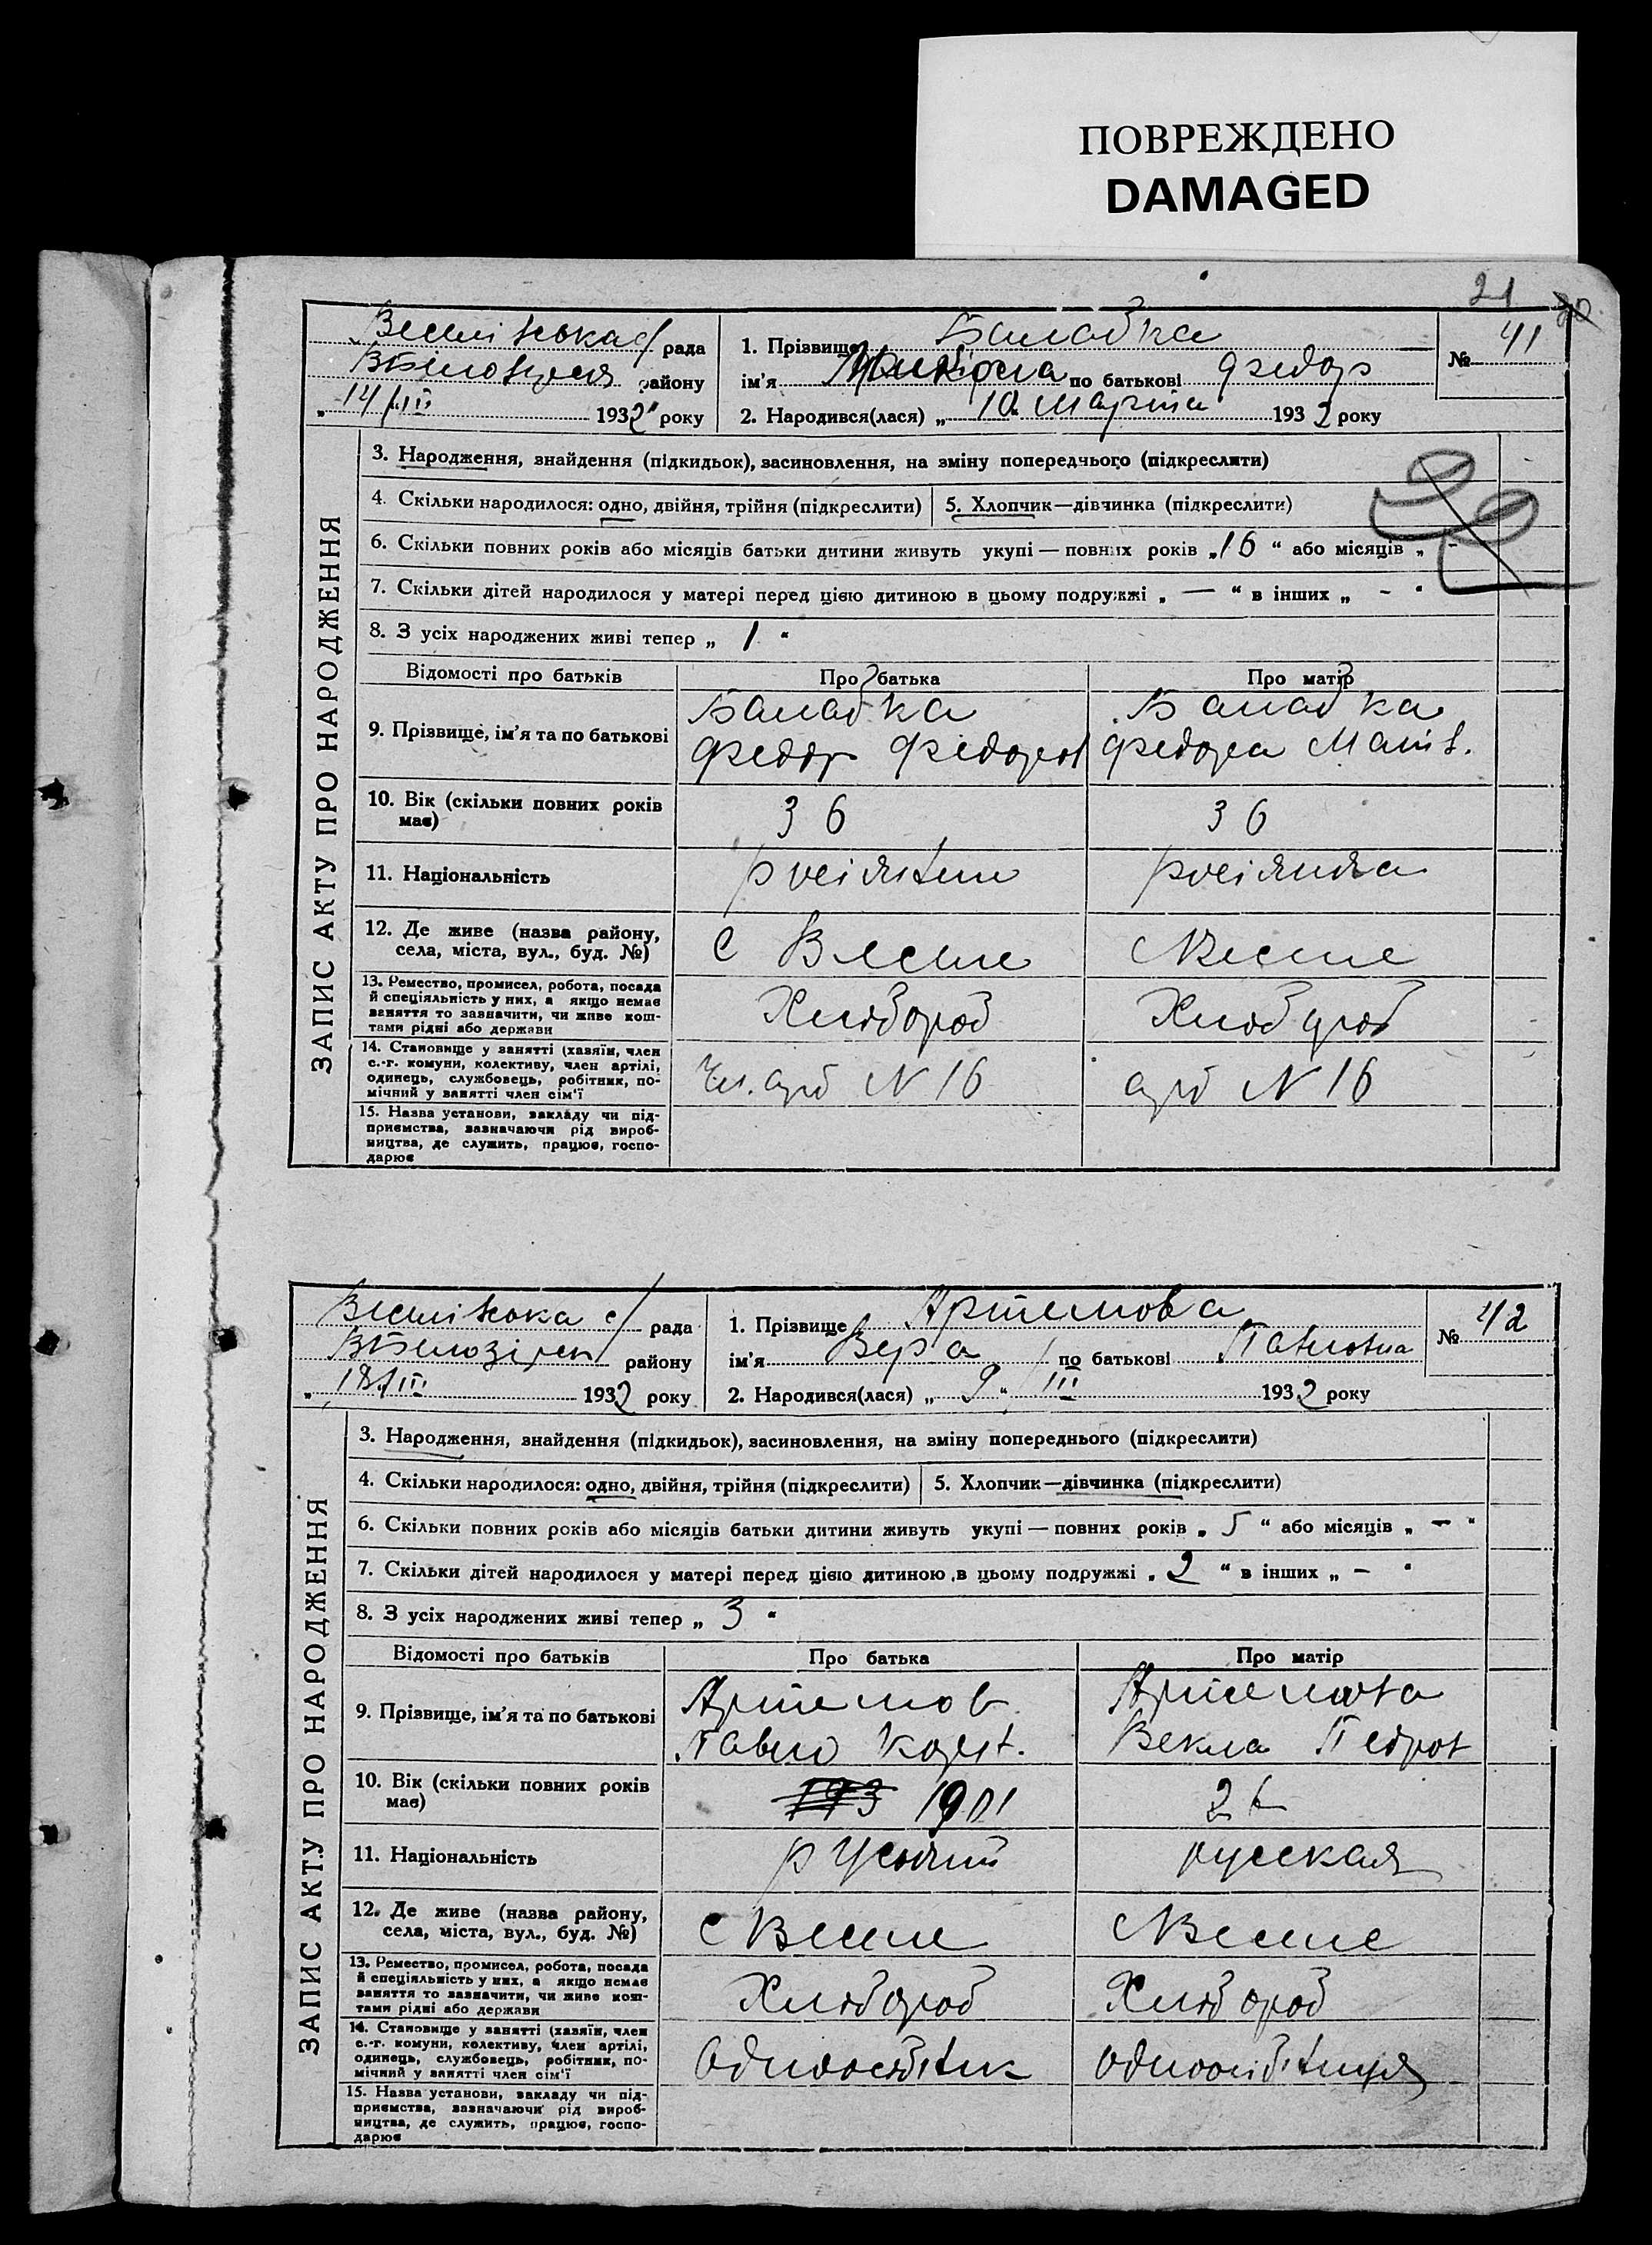 ПОВРЕЖДЕНО
DAMAGED
21
41
рада
1. Прізвище Балабка
№ 41
району
ім'я Микола по батькові Федор
14/III 1932 року
2. Народився(лася) „ 10 Марта 1932 року
ЗАПИС АКТУ ПРО НАРОДЖЕННЯ
3. Народження, знайдення (підкидьок), засиновлення, на зміну попереднього (підкреслити)
4. Скільки народилося: одно, двійня, трійня (підкреслити)
5. Хлопчик—дівчинка (підкреслити)
6. Скільки повних років або місяців батьки дитини живуть укупі — повних років „16 “ або місяців „ -
7. Скільки дітей народилося у матері перед цією дитиною в цьому подружжі „ — “ в інших „ - “
8. З усіх народжених живі тепер „ 1 “
Відомості про батьків
Про батька
Про матір
9. Прізвище, ім'я та по батькові
Балабка
Федор Федоров
Балабка
Федора Матв.
10. Вік (скільки повних років має)
36
36
11. Національність
12. Де живе (назва району, села, міста, вул., буд. №)
с Веселе
с Веселе
13. Ремество, промисел, робота, посада
й спеціяльність у них, а якщо немає
заняття то зазначити, чи живе кош-
тами рідні або держави
Хлібороб
Хлібороб
14. Становище у занятті (хазяїн, член
с.-г. комуни, колективу, член артілі,
одинець, службовець, робітник, по-
мічний у занятті член сім'ї
Чл. арт N 16
арт N 16
15. Назва установи, закладу чи під-
приємства, зазначаючи рід вироб-
ництва, де служить, працює, госпо-
дарює
рада
1. Прізвище Артемова
№ 42
району
ім'я Вера по батькові Павловна
18/III 1932 року
2. Народився(лася) „ 9 “ III 1932 року
ЗАПИС АКТУ ПРО НАРОДЖЕННЯ
3. Народження, знайдення (підкидьок), засиновлення, на зміну попереднього (підкреслити)
4. Скільки народилося: одно, двійня, трійня (підкреслити)
5. Хлопчик—дівчинка (підкреслити)
6. Скільки повних років або місяців батьки дитини живуть укупі — повних років „ 5 “ або місяців „ - “
7. Скільки дітей народилося у матері перед цією дитиною в цьому подружжі „ 2 “ в інших „ - “
8. З усіх народжених живі тепер „ 3 “
Відомості про батьків
Про батька
Про матір
9. Прізвище, ім'я та по батькові
Артемов
Павло
Артемова
Векла Петров
10. Вік (скільки повних років має)
1901
11. Національність
руський
русская
12. Де живе (назва району, села, міста, вул., буд. №)
с Веселе
с Веселе
13. Ремество, промисел, робота, посада
й спеціяльність у них, а якщо немає
заняття то зазначити, чи живе кош-
тами рідні або держави
Хлібороб
Хлібороб
14. Становище у занятті (хазяїн, член
с.-г. комуни, колективу, член артілі,
одинець, службовець, робітник, по-
мічний у занятті член сім'ї
Одноосібник
одноосібниця
15. Назва установи, закладу чи під-
приємства, зазначаючи рід вироб-
ництва, де служить, працює, госпо-
дарює